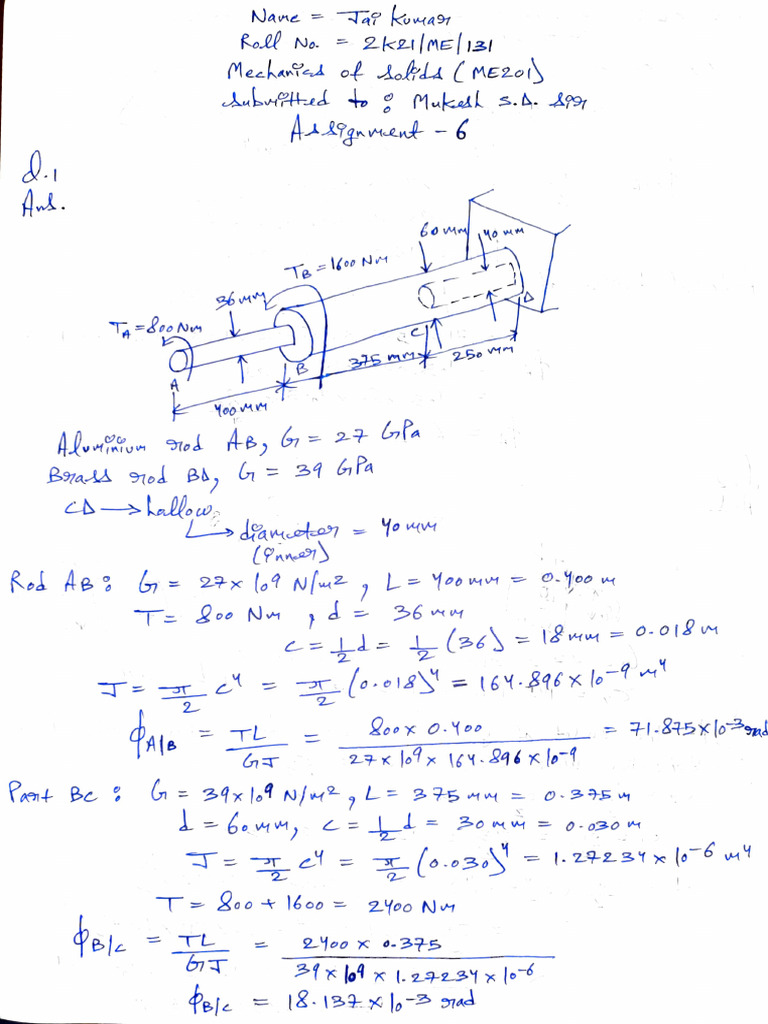 Name = Jai Kumar
Roll No. = 2K21/ME/131
Mechanics of solids (ME201)
submitted to : Mukesh S.D. Sir
Assignment - 6
Q.1
Ans.
60 mm
40 mm
TB = 1600 Nm
36 mm
TA = 800 Nm
A
B
C
D
400 mm
375 mm
250 mm
Aluminium rod AB, G = 27 GPa
Brass rod BD, G = 39 GPa
CD → hallow
↳ diameter = 40 mm
(inner)
Rod AB : G = 27 × 10^9 N/m2 , L = 400 mm = 0.400 m
T = 800 Nm , d = 36 mm
c = 1/2 d = 1/2 (36) = 18 mm = 0.018 m
J = π/2 c^4 = π/2 (0.018)^4 = 164.896 × 10^-9 m^4
ϕA/B = TL/GJ = 800 × 0.400 / 27 × 10^9 × 164.896 × 10^-9 = 71.875 × 10^-3 rad
Part BC : G = 39 × 10^9 N/m2 , L = 375 mm = 0.375 m
d = 60 mm, c = 1/2 d = 30 mm = 0.030 m
J = π/2 c^4 = π/2 (0.030)^4 = 1.27234 × 10^-6 m^4
T = 800 + 1600 = 2400 Nm
ϕB/C = TL/GJ = 2400 × 0.375 / 39 × 10^9 × 1.27234 × 10^-6
ϕB/C = 18.137 × 10^-3 rad